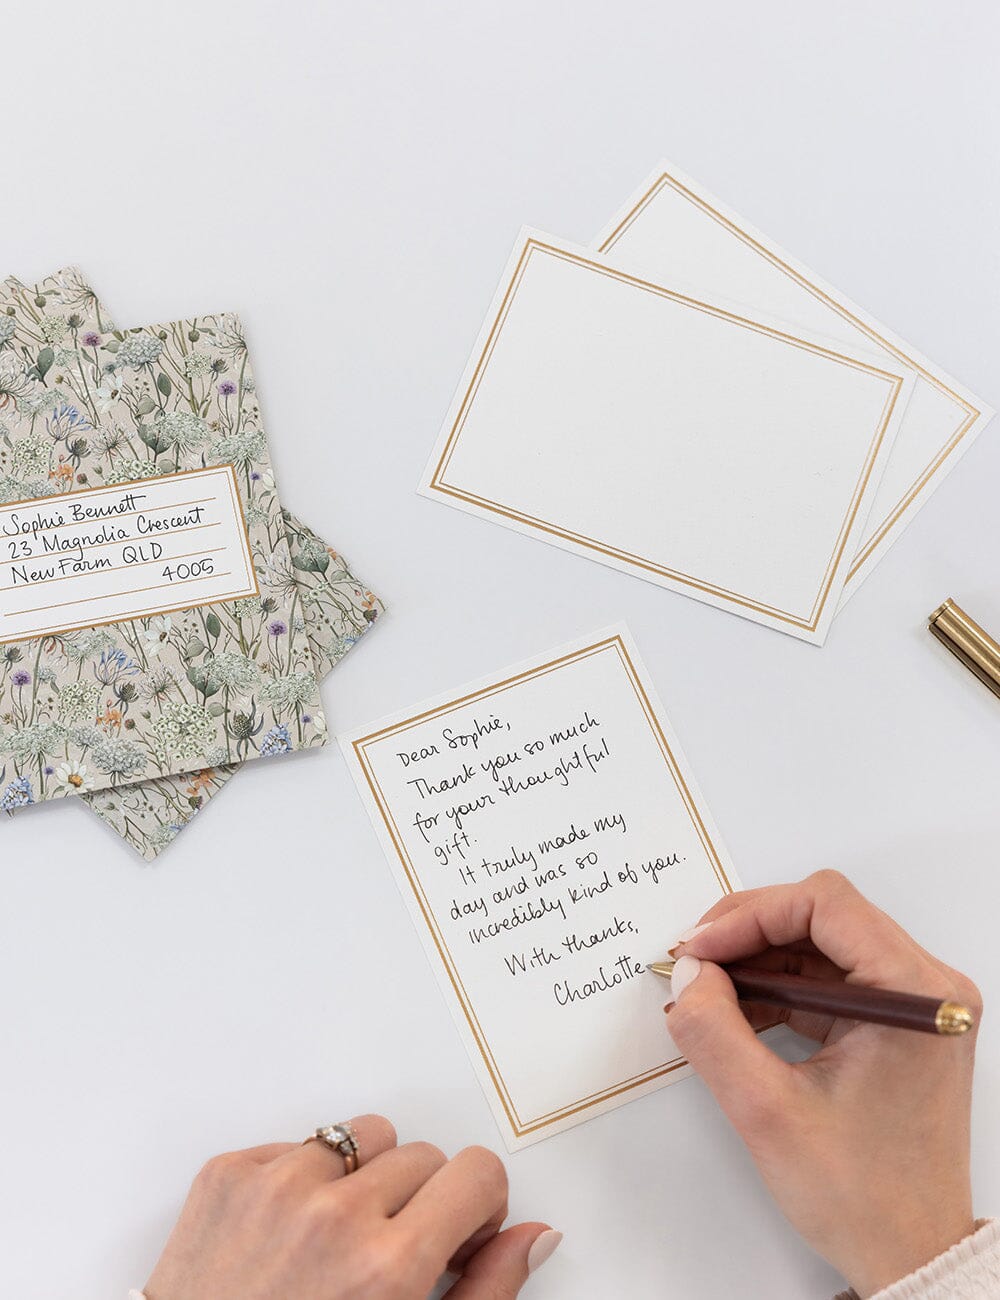 Sophie Bennett
23 Magnolia Crescent
New Farm QLD
4005
Dear Sophie,
Thank you so much
for your thoughtful
gift.
It truly made my
day and was so
incredibly kind of you.
With thanks,
Charlotte